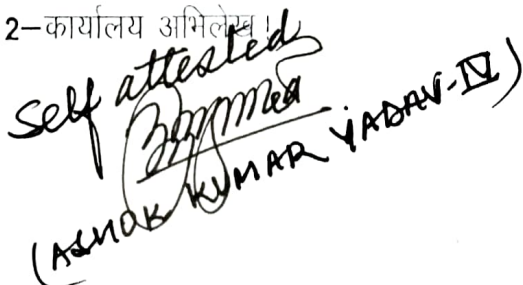 2–कार्यालय अभिलेख।
Self attested
(ASHOK KUMAR YADAV-IV)